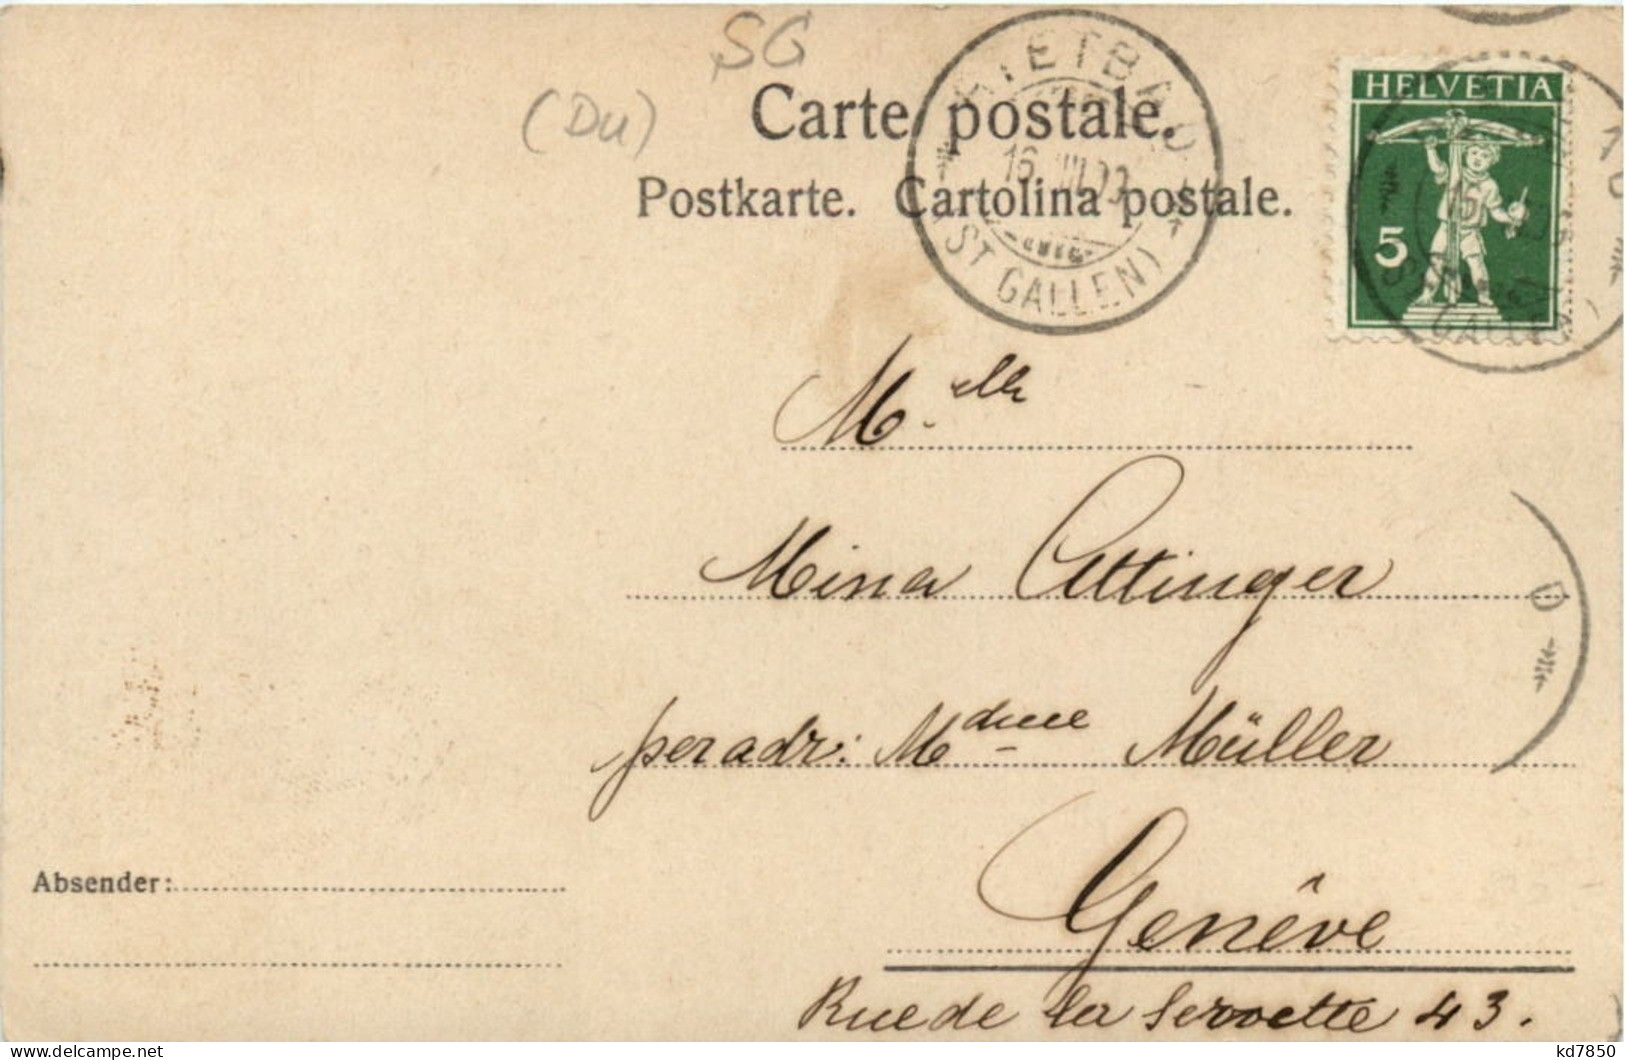 SG
(Du)
Carte postale.
Postkarte. Cartolina postale.
RIETBAD
16. III. 09
(ST GALLEN)
HELVETIA
5
M.elle
Mina Ottinger
per adr: Mdme Müller
Genève
Rue de la Servette 43.
Absender:
D
delcampe.net
kd7850